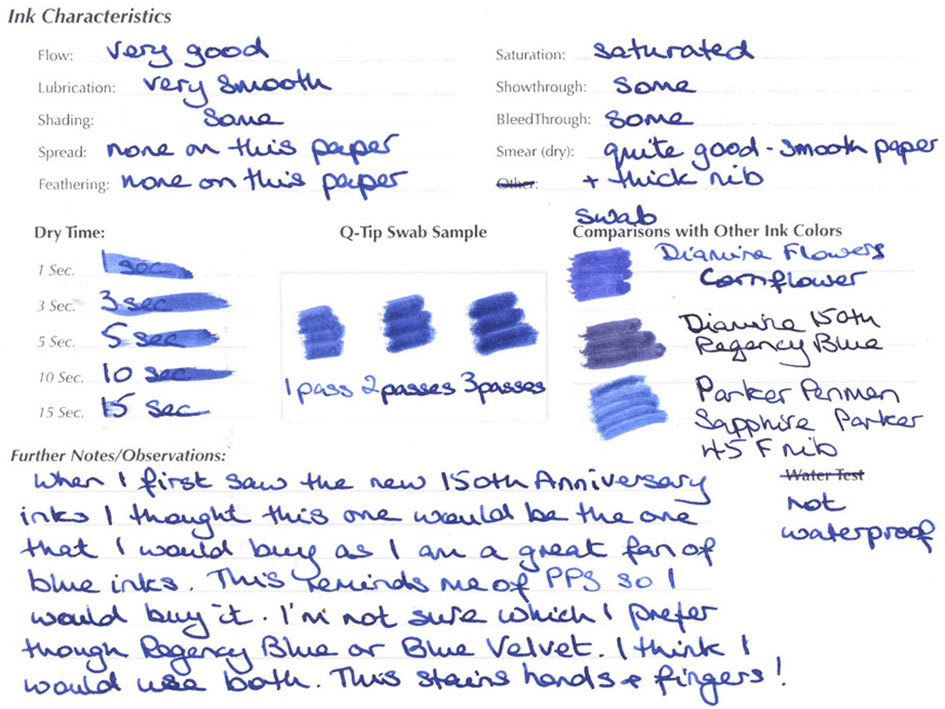 Ink Characteristics
Flow: very good
Lubrication: very smooth
Shading: Some
Spread: none on this paper
Feathering: none on this paper
Saturation: saturated
Showthrough: some
BleedThrough: some
Smear (dry): quite good - smooth paper
Other: + thick nib
Dry Time:
1 Sec. 1 sec
3 Sec. 3 sec
5 Sec. 5 sec
10 Sec. 10 sec
15 Sec. 15 sec
Q-Tip Swab Sample
1 pass 2 passes 3 passes
swab
Comparisons with Other Ink Colors
Diamine Flowers
Cornflower
Diamine 150th
Regency Blue
Parker Penman
Sapphire Parker
45 F nib
Further Notes/Observations:
When I first saw the new 150th Anniversary
inks I thought this one would be the one
that I would buy as I am a great fan of
blue inks. This reminds me of PPS so I
would buy it. I'm not sure which I prefer
though Regency Blue or Blue Velvet. I think I
would use both. This stains hands + fingers!
Water Test
not
waterproof